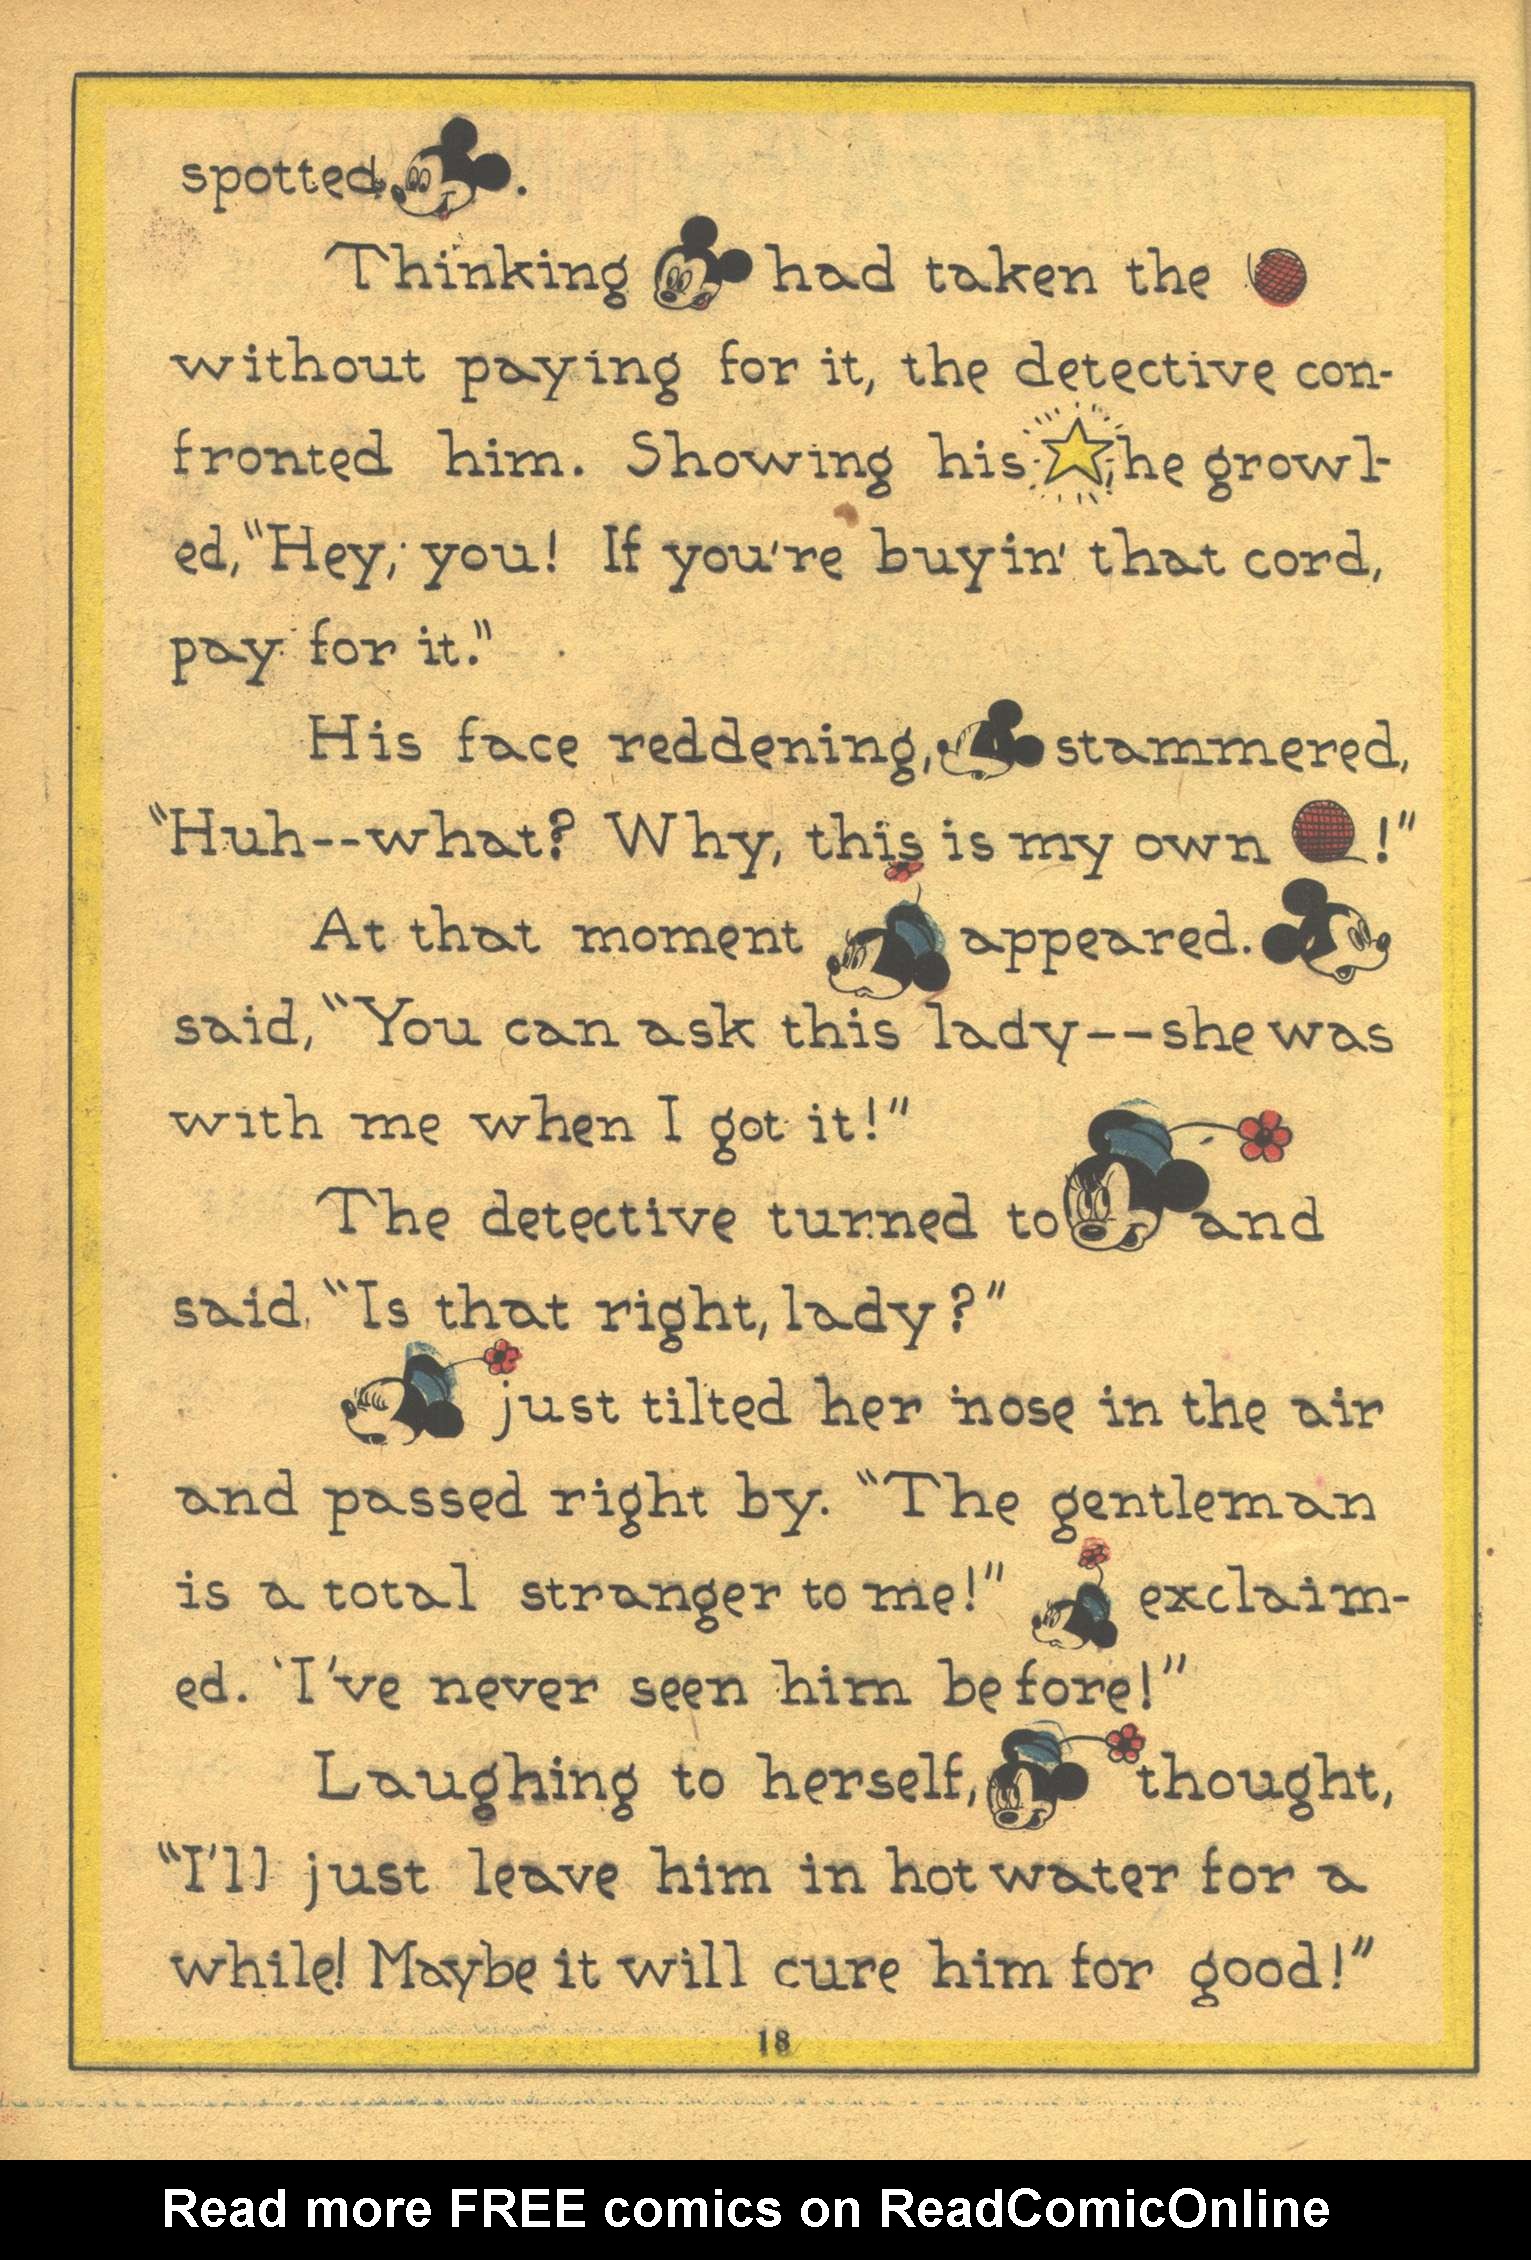 spotted .
Thinking had taken the
without paying for it, the detective con-
fronted him. Showing his , he growl-
ed, "Hey, you! If you're buyin' that cord,
pay for it."
His face reddening, stammered,
"Huh--what? Why, this is my own !"
At that moment appeared.
said, "You can ask this lady--she was
with me when I got it!"
The detective turned to and
said, "Is that right, lady?"
just tilted her nose in the air
and passed right by. "The gentleman
is a total stranger to me!" exclaim-
ed. 'I've never seen him before!"
Laughing to herself, thought,
"I'll just leave him in hot water for a
while! Maybe it will cure him for good!"
18
Read more FREE comics on ReadComicOnline